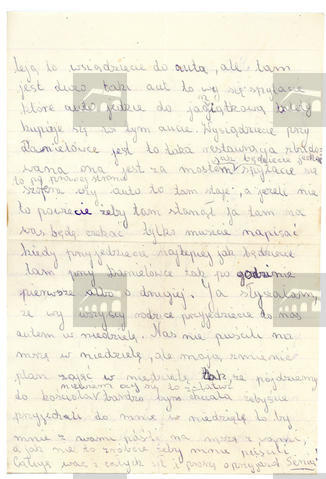 leją to wsiądziecie do auta, ale tam
jest dużo taki aut to wy się spytacie
które auto jedzie do wtedy
kupicie się w tym aucie. Wysiądziecie przy
jest to taka restauracja zbudo-
jak będziecie jechać
wana ona jest za mostem spytacie się
to po prawej stronie
szofera czy auto to tam staje, a jeżeli nie
to powiecie żeby tam stanął ja tam na
was będę czekać tylko musicie napisać
kiedy przyjedziecie najlepiej jak będziecie
tam przy tak po godzinie
pierwszej albo o drugiej. Ja słyszałam,
że wy wszyscy rodzice przyjedziecie do nas
autem w niedzielę. Nas nie puścili na
mszę w niedzielę, ale mają zmienić
plan zajęć w niedzielę że pójdziemy
niewiem czy się to
do kościoła bardzo bym chciała żebyście
przyjechali do mnie w niedzielę to by
mnie z wami puścili na mszę z
a jak nie to zróbcie żeby mnie puścili
Całuję was z całych sił i proszę o przyjazd